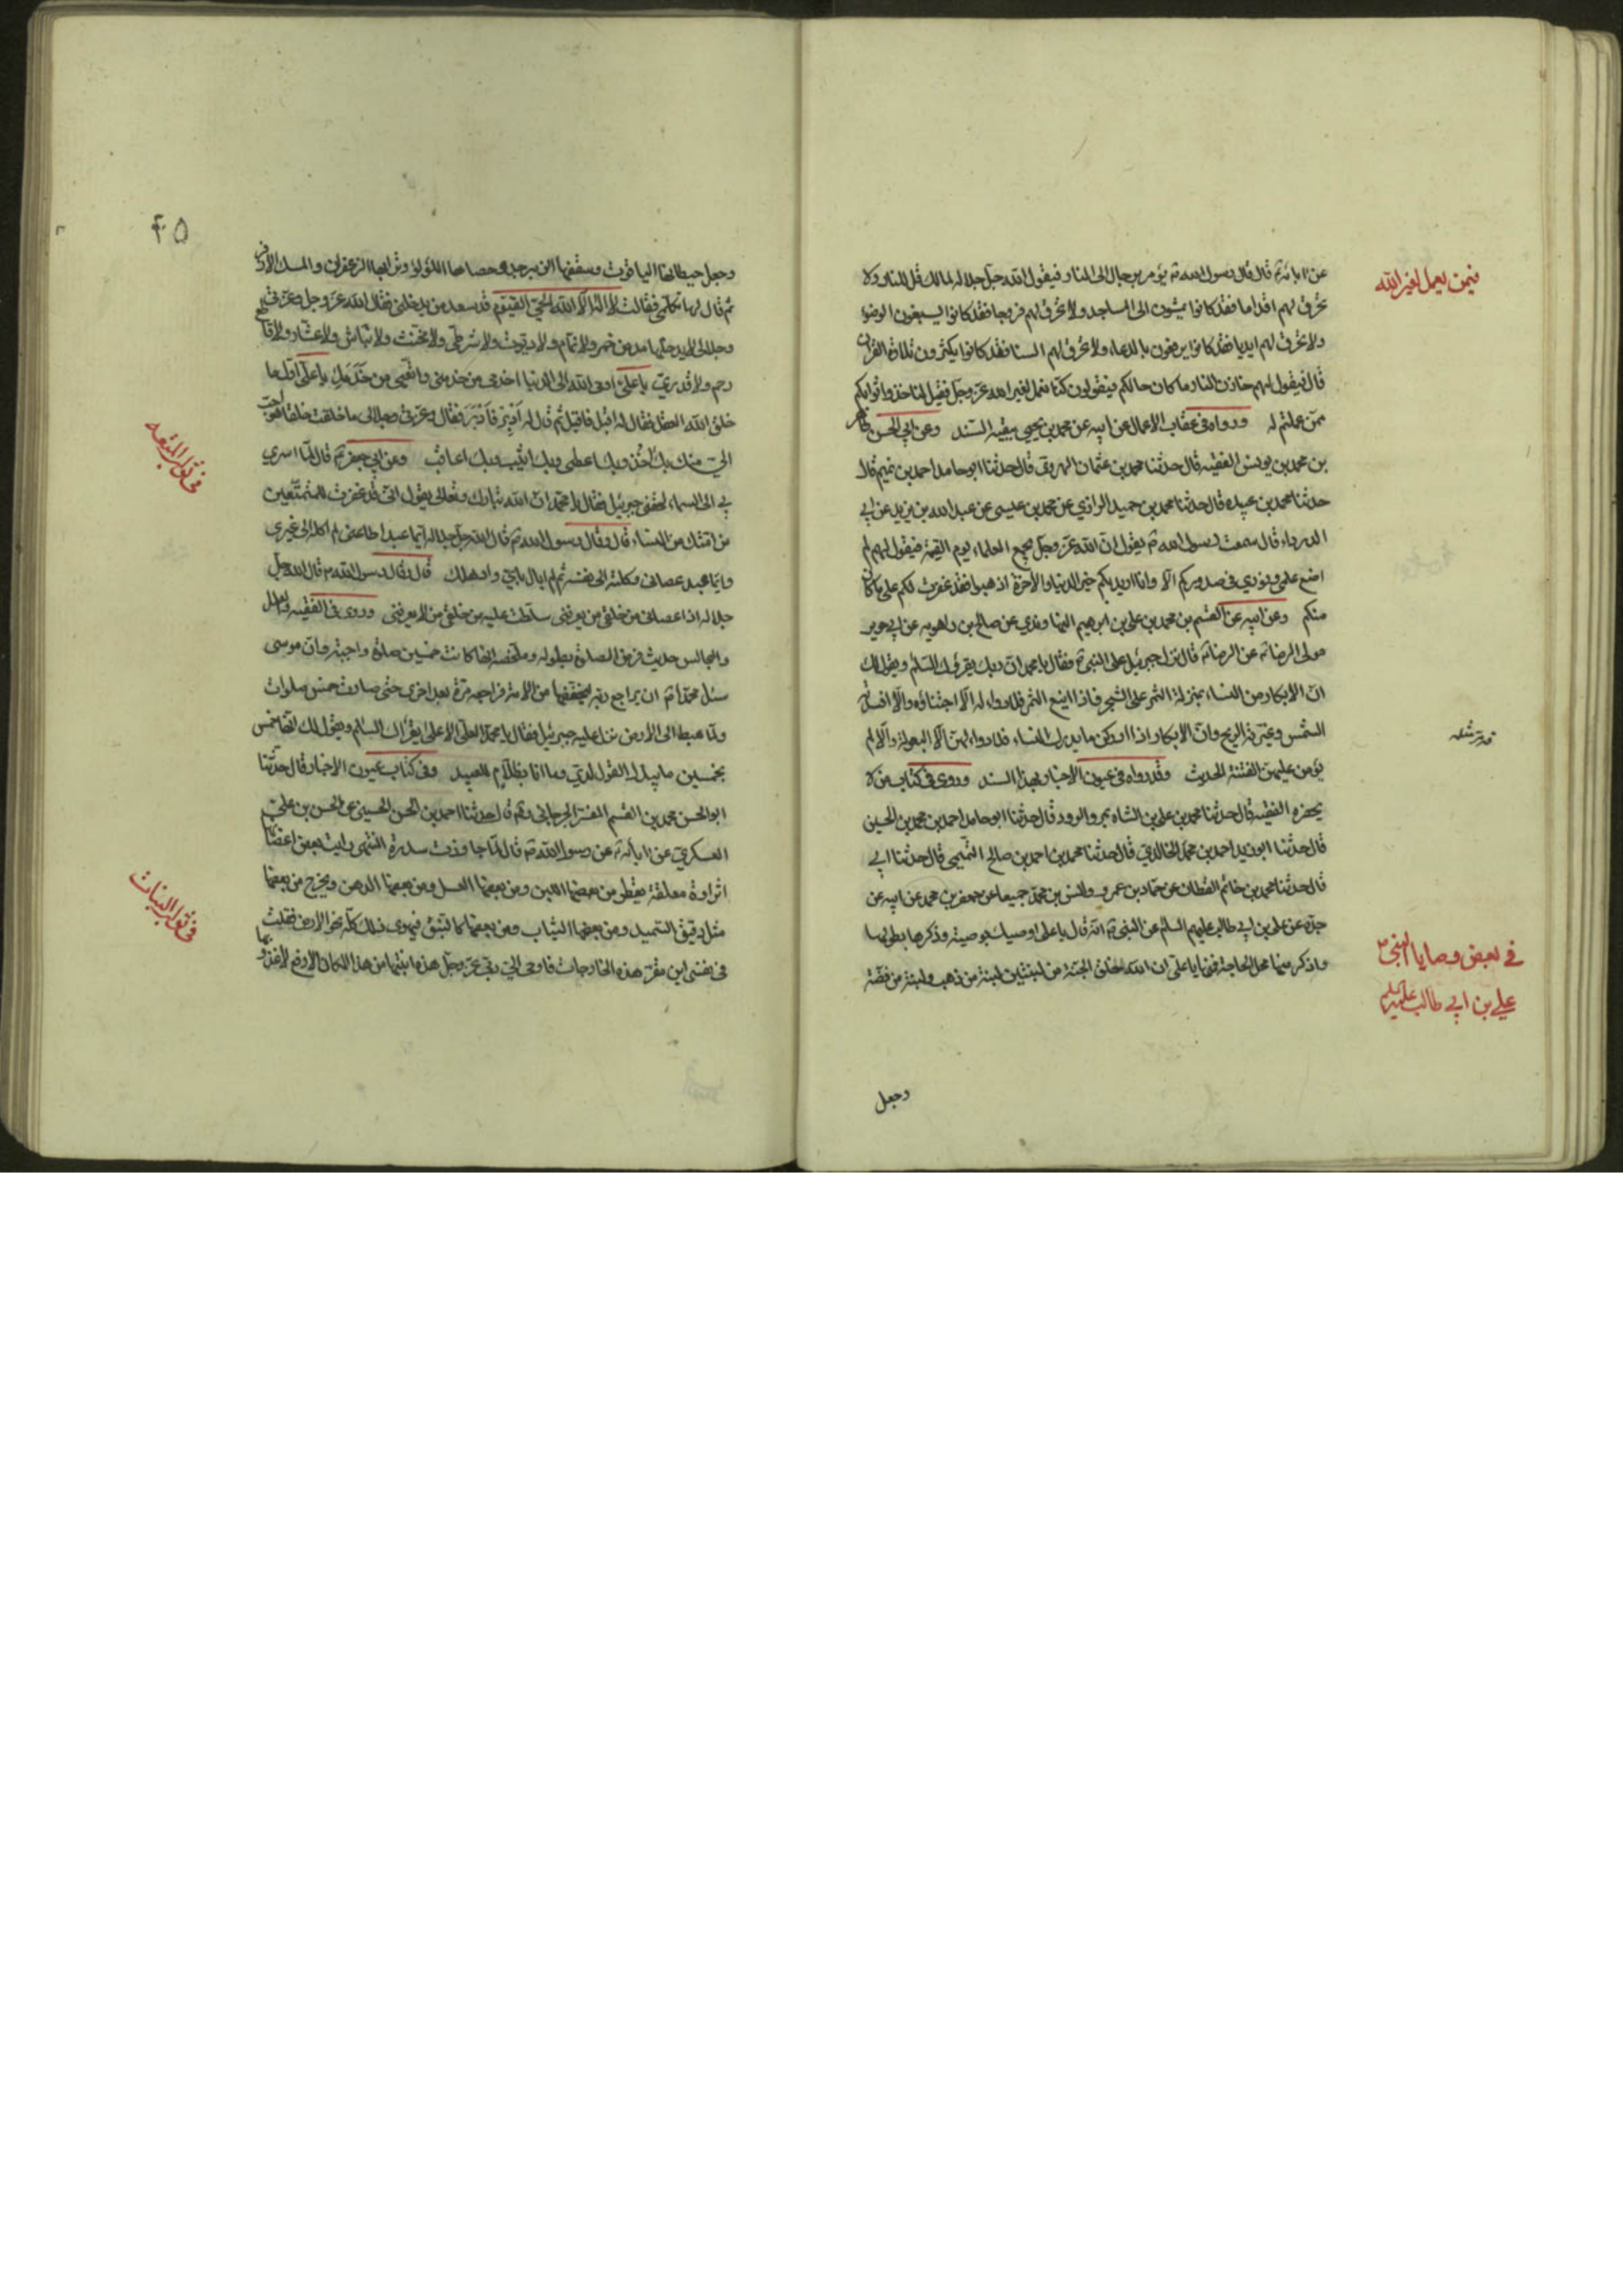 فيمن يعمل لغير الله
عن ابائه ع قال قال رسول الله ص يؤمر برجال الى النار فيقول الله جل جلاله لمالك قل للنار لا
تحرقي لهم اقداما فقد كانوا يمشون الى المساجد ولا تحرقي لهم فروجا فقد كانوا يسبغون الوضوء
ولا تحرقي لهم ايديا فقد كانوا يرفعون بالدعاء ولا تحرقي لهم السنا فقد كانوا يكثرون تلاوة القرآن
قال فيقول لهم خازن النار ما كان حالكم فيقولون كنا نعمل لغير الله عز وجل فقيل لنا خذوا ثوابكم
ممن عملتم له ورواه في عقاب الاعمال عن ابيه عن محمد بن يحيى ببقية السند وعن ابي الحسن طاهر
بن محمد بن يونس الفقيه قال حدثنا محمد بن عثمان الهروي قال حدثنا ابو حامد احمد بن تميم قال
حدثنا محمد بن عبيدة قال حدثنا محمد بن حميد الرازي عن محمد بن عيسى عن عبد الله بن يزيد عن ابي
الدرداء قال سمعت رسول الله ص يقول ان الله عز وجل يجمع العلماء يوم القيمة فيقول لهم لم
اضع علمي ونوري في صدوركم الا وانا اريد بكم خير الدنيا والاخرة اذهبوا فقد غفرت لكم على ما كان
منكم وعن ابيه عن القسم بن محمد بن علي بن ابرهيم النهاوندي عن صالح بن راهويه عن ابي حوير
مولى الرضا ع عن الرضا ع قال نزل جبرئيل على النبي ص فقال يا محمد ان ربك يقرئك السلام ويقول لك
ان الابكار من النساء بمنزلة الثمر على الشجر فاذا اينع الثمر فلا دواء له الا اجتناؤه والا افسدته
الشمس وغيرته الريح وان الابكار اذا ادركن ما يدرك النساء فلا دواء لهن الا البعولة والا لم
يؤمن عليهن الفتنة الحديث وقد رواه في عيون الاخبار بهذا السند وروى في كتاب من لا
يحضره الفقيه قال حدثنا محمد بن علي بن الشاه بمرو الرود قال حدثنا ابو حامد احمد بن محمد بن الحسين
قال حدثنا ابو يزيد احمد بن محمد الخالدي قال حدثنا محمد بن احمد بن صالح التميمي قال حدثنا ابي
قال حدثنا محمد بن حاتم القطان عن حماد بن عمرو وانس بن محمد جميعا عن جعفر بن محمد عن ابيه عن
جده عن علي بن ابي طالب عليهم السلام عن النبي ص انه قال يا علي اوصيك بوصية وذكرها بطولها
واذكر منها محل الحاجة فمنها يا علي ان الله خلق الجنة من لبنتين لبنة من ذهب ولبنة من فضة
في بعض وصايا النبي ص
علي بن ابي طالب عليه السلام
وجعل
۴۵
وجعل حيطانها الياقوت وسقفها الزبرجد وحصاها اللؤلؤ وترابها الزعفران والمسك الاذفر
ثم قال لها تكلمي فقالت لا اله الا الله الحي القيوم قد سعد من يدخلني فقال الله عز وجل وعزتي
وجلالي لا يدخلها مدمن خمر ولا نمام ولا ديوث ولا شرطي ولا مخنث ولا نباش ولا عشار ولا قاطع
رحم ولا قدري يا علي اوحى الله الى الدنيا اخدمي من خدمني واتعبي من خدمك يا علي اول ما
خلق الله العقل فقال له اقبل فاقبل ثم قال له ادبر فادبر فقال وعزتي وجلالي ما خلقت خلقا هو احب
الي منك بك آخذ وبك اعطي وبك اثيب وبك اعاقب وعن ابي جعفر ع قال لما اسري
بي الى السماء لحقني جبرئيل فقال يا محمد ان الله تبارك وتعالى يقول اني قد غفرت للمتمتعين
من امتك من النساء قال وقال رسول الله ص قال الله جل جلاله ايما عبد اطاعني لم اكله الى غيري
وايما عبد عصاني وكلته الى نفسه ثم لم ابال باي واد هلك قال وقال رسول الله ص قال الله جل
جلاله اذا عصاني من خلقي من يعرفني سلطت عليه من خلقي من لا يعرفني وروى في الفقيه والعلل
والمجالس حديث فرض الصلوة بطوله وملخصه انها كانت خمسين صلوة واجبة وان موسى
سئل محمدا ص ان يراجع ربه ليخففها من الامة فراجعه مرة بعد اخرى حتى صارت خمس صلوات
ولما هبط الى الارض نزل عليه جبرئيل فقال يا محمد العلي الاعلى يقرأك السلام ويقول لك انها خمس
بخمسين ما يبدل القول لدي وما انا بظلام للعبيد وفي كتاب عيون الاخبار قال حدثنا
ابو الحسن محمد بن القسم المفسر الجرجاني رضه قال حدثنا احمد بن الحسن الحسيني عن الحسن بن علي
العسكري عن ابائه ع عن رسول الله ص قال لما جاوزت سدرة المنتهى رايت بعض اغصانها
اثداء معلقة يقطر من بعضها اللبن ومن بعضها العسل ومن بعضها الدهن ويخرج من بعضها
مثل دقيق السميد ومن بعضها الثياب ومن بعضها كالنبق فيهوى ذلك كله نحو الارض فقلت
في نفسي اين مقر هذه الخارجات فاوحى الي ربي عز وجل هذه انبتها من هذا المكان الارفع لاغذو بها
في ثواب المتعة
في ثواب البنات